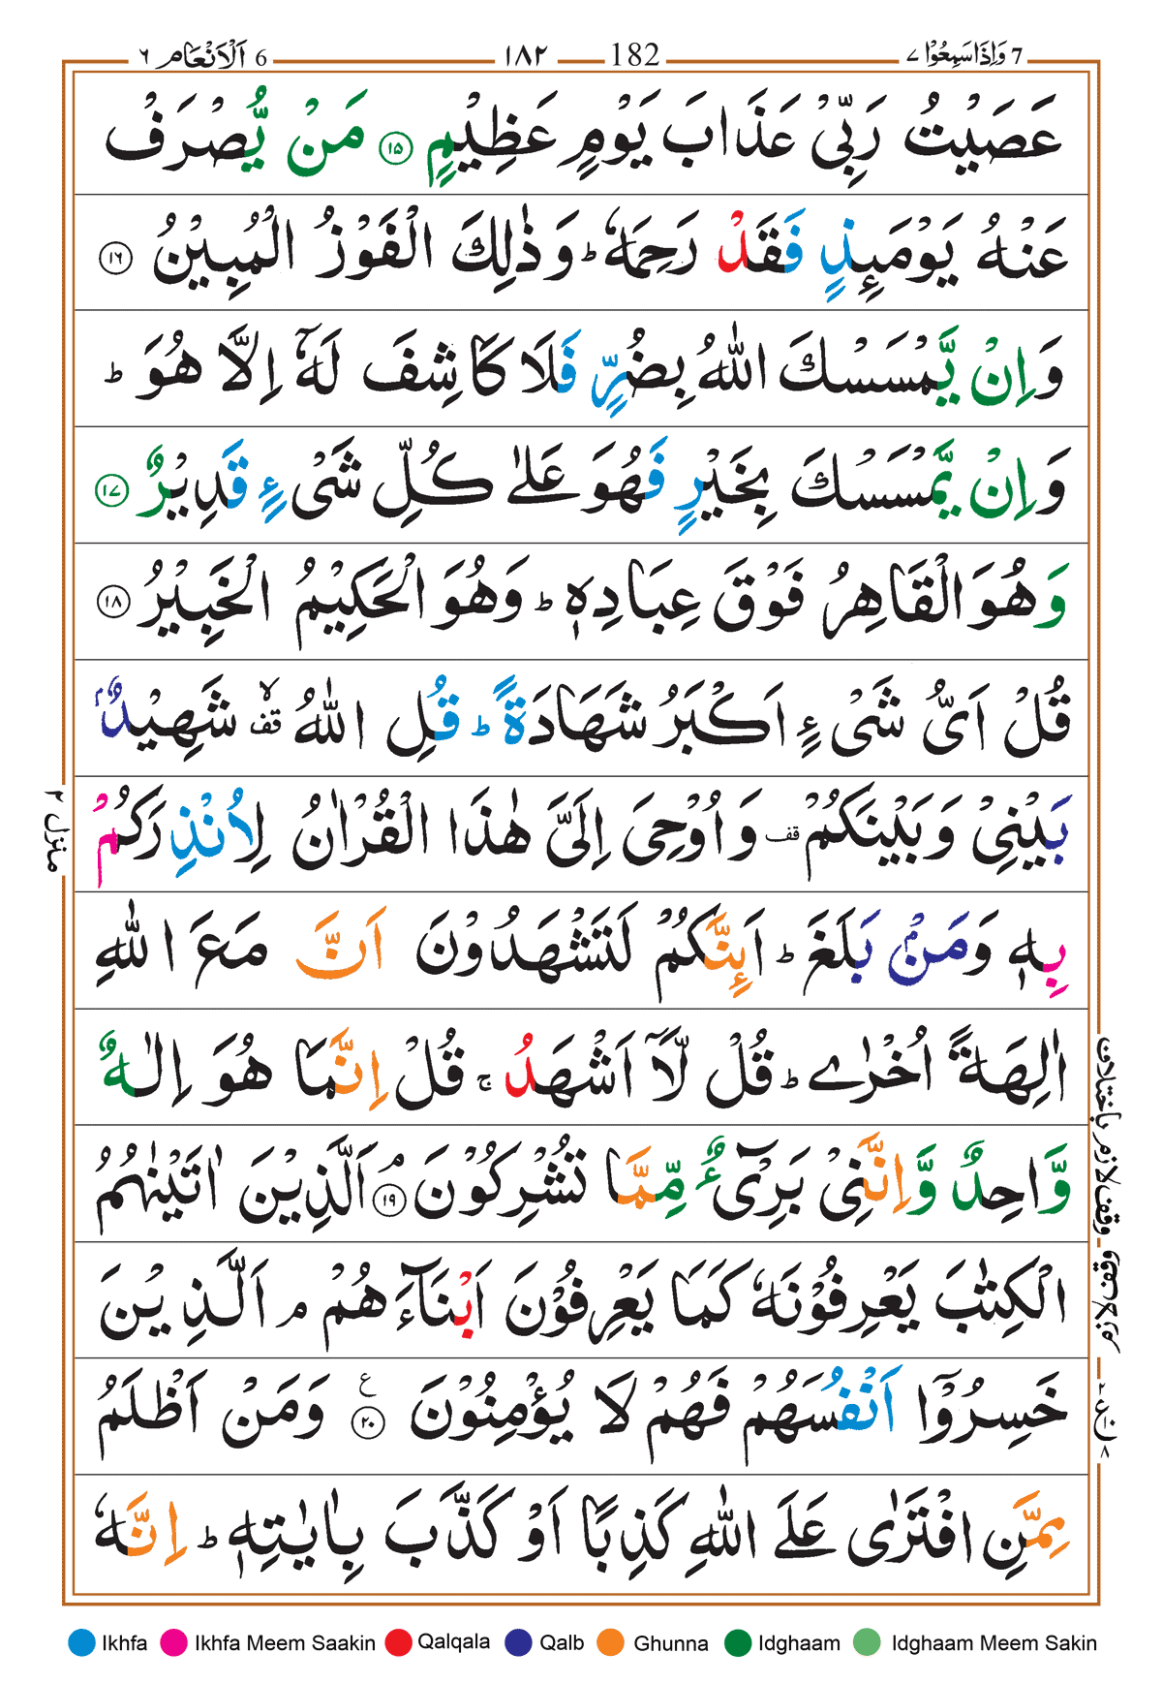 7 وَاِذَاسَمِعُوْا ٧ 182 ١٨٢ 6 اَلْاَنْعَام ٦
عَصَيْتُ رَبِّىْ عَذَابَ يَوْمٍ عَظِيْمٍ ١٥ مَنْ يُّصْرَفْ
عَنْهُ يَوْمَىِٕذٍ فَقَدْ رَحِمَهٗ ؕ وَذٰلِكَ الْفَوْزُ الْمُبِيْنُ ١٦
وَاِنْ يَّمْسَسْكَ اللّٰهُ بِضُرٍّ فَلَا كَاشِفَ لَهٗۤ اِلَّا هُوَ ؕ
وَاِنْ يَّمْسَسْكَ بِخَيْرٍ فَهُوَ عَلٰى كُلِّ شَىْءٍ قَدِيْرٌ ١٧
وَهُوَ الْقَاهِرُ فَوْقَ عِبَادِهٖ ؕ وَهُوَ الْحَكِيْمُ الْخَبِيْرُ ١٨
قُلْ اَىُّ شَىْءٍ اَكْبَرُ شَهَادَةً ؕ قُلِ اللّٰهُ ۙ قف شَهِيْدٌۢ
بَيْنِىْ وَبَيْنَكُمْ قف وَاُوْحِىَ اِلَىَّ هٰذَا الْقُرْاٰنُ لِاُنْذِرَكُمْ
بِهٖ وَمَنْۢ بَلَغَ ؕ اَىِٕنَّكُمْ لَتَشْهَدُوْنَ اَنَّ مَعَ اللّٰهِ
اٰلِهَةً اُخْرٰى ؕ قُلْ لَّاۤ اَشْهَدُ ۚ قُلْ اِنَّمَا هُوَ اِلٰهٌ
وَّاحِدٌ وَّاِنَّنِىْ بَرِىْٓءٌ مِّمَّا تُشْرِكُوْنَ ۘ ١٩ اَلَّذِيْنَ اٰتَيْنٰهُمُ
الْكِتٰبَ يَعْرِفُوْنَهٗ كَمَا يَعْرِفُوْنَ اَبْنَآءَهُمْ ۘ اَلَّذِيْنَ
خَسِرُوْۤا اَنْفُسَهُمْ فَهُمْ لَا يُؤْمِنُوْنَ ٢٠ ع وَمَنْ اَظْلَمُ
مِمَّنِ افْتَرٰى عَلَى اللّٰهِ كَذِبًا اَوْ كَذَّبَ بِاٰيٰتِهٖ ؕ اِنَّهٗ
منزل ٢
Ikhfa Ikhfa Meem Saakin Qalqala Qalb Ghunna Idghaam Idghaam Meem Sakin